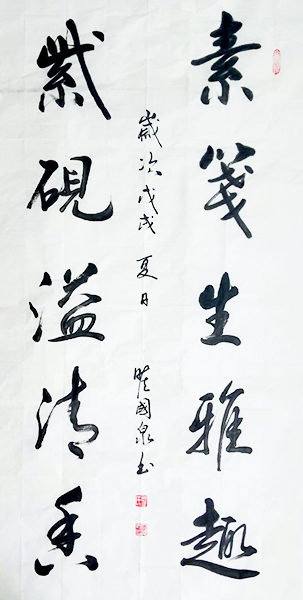 素箋生雅趣
紫硯溢清香
歲次戊戌夏日
國泉书